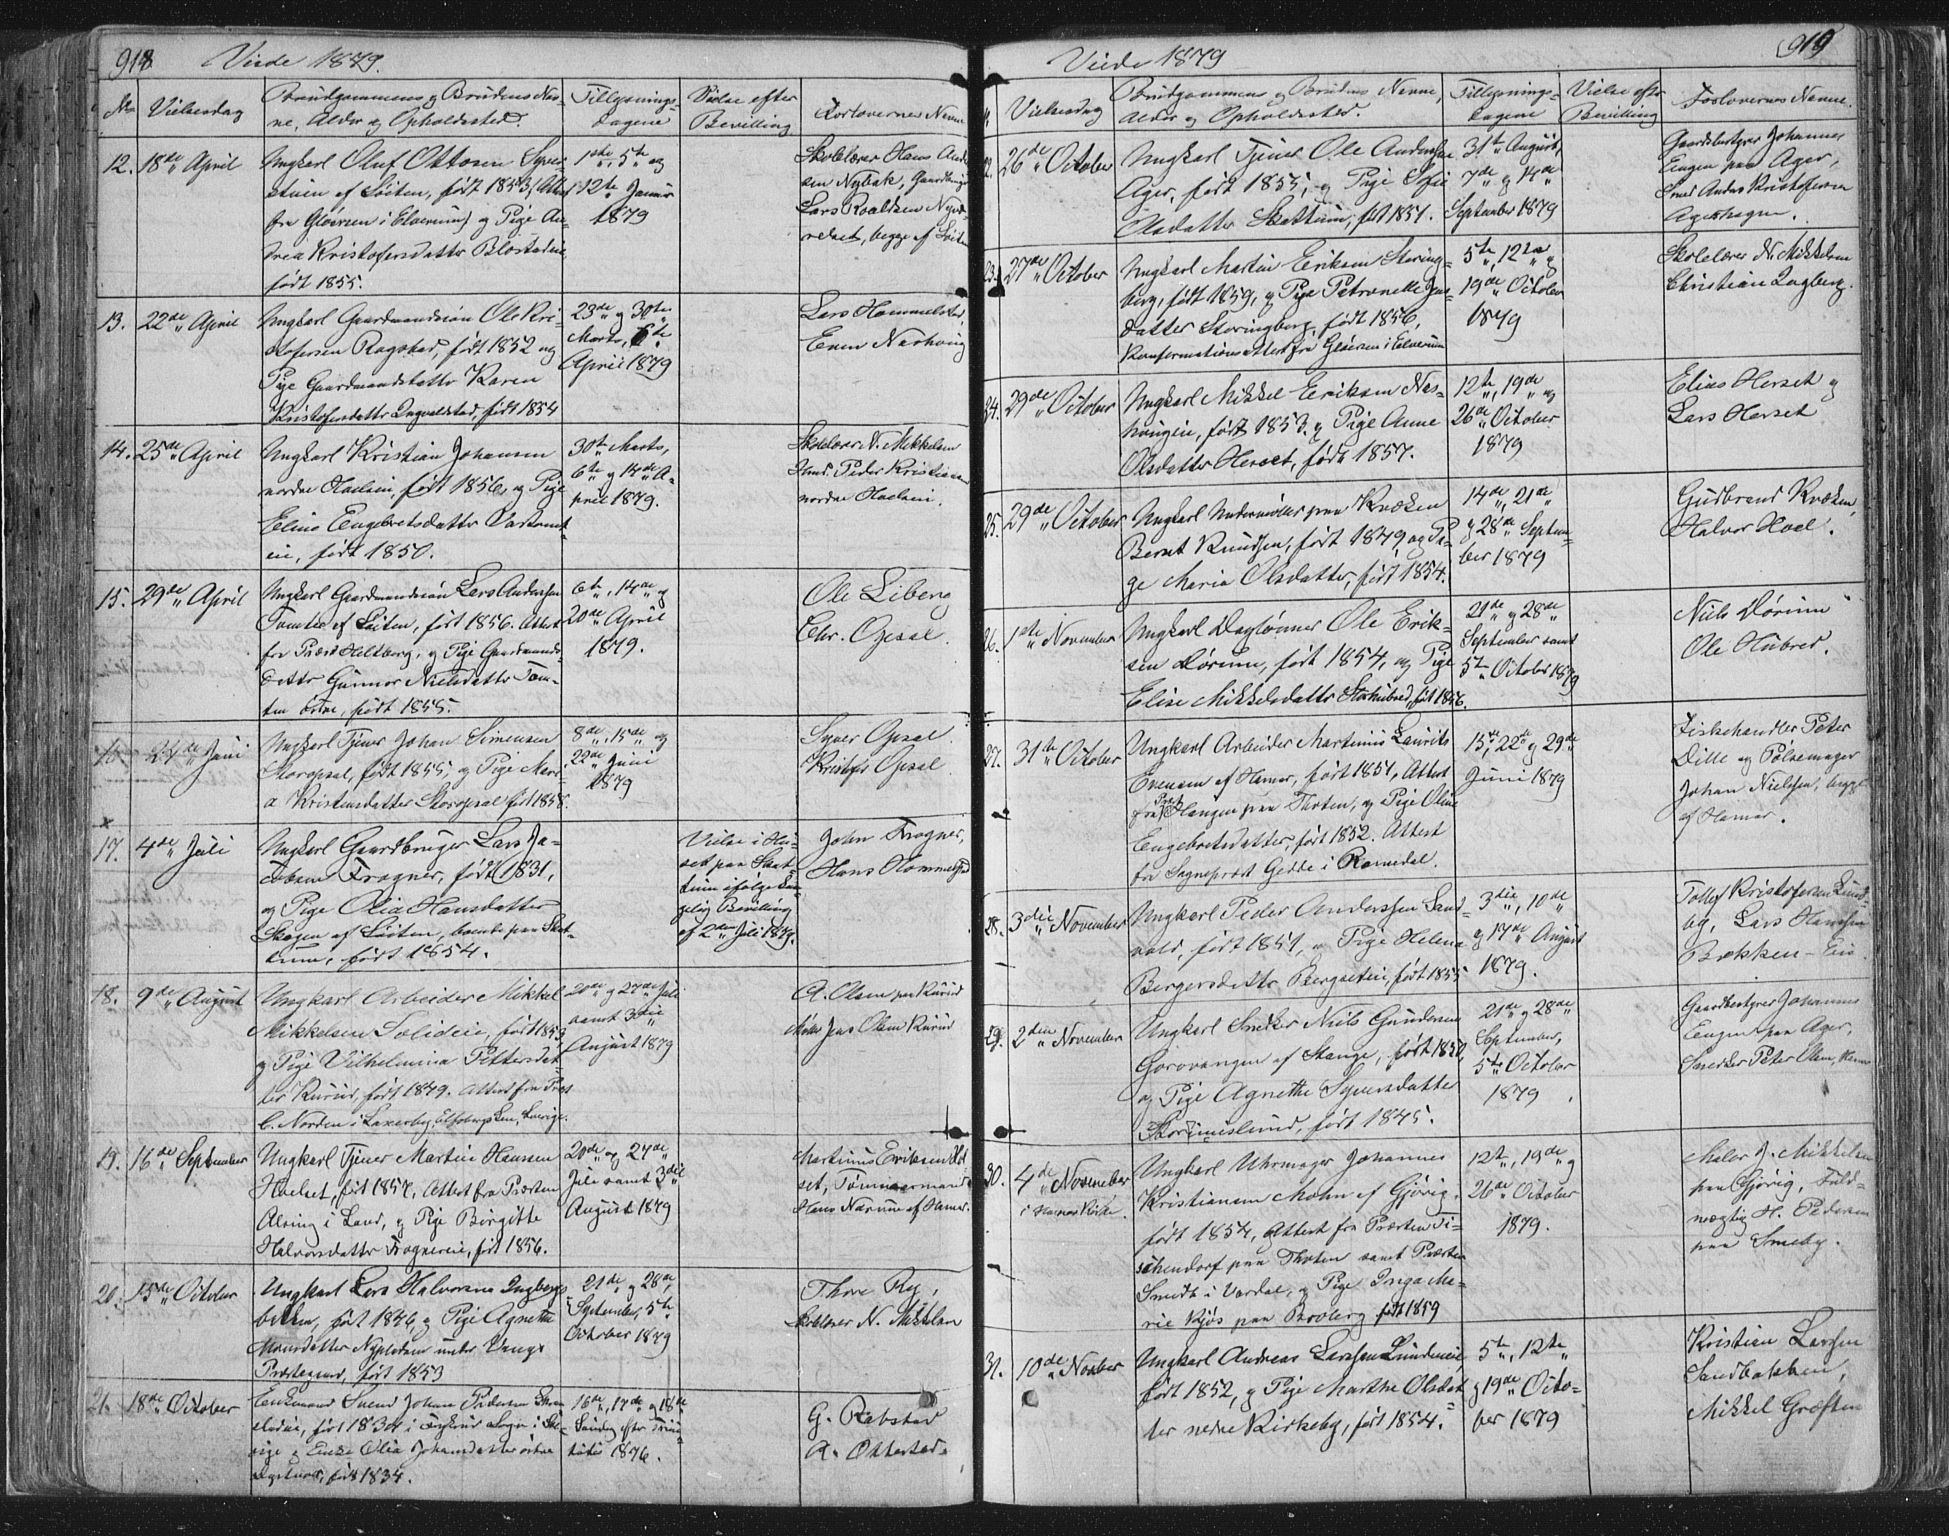 918
Viede 1879.
No
Vielsesdag
Brudgommens og Brudens Nav-
ne, Alder og Opholdssted.
Tillysnings-
dagene
Vielse efter
Bevilling
Forlovernes Navne
12. 18de April
Ungkarl Oluf Ottosen Syver-
stuen af Löiten, født 1853, (Attest
fra Gløersen i Elverum) og Pige An-
drea Kristofersdatter
født 1855.
1ste, 5te og
12te Januar
1879
Skolelærer Hans Ander-
sen Nybak, Gaardbruger
Lars Roaldsen
begge af Löiten
13. 22de April
Ungkarl Gaardmandssön Ole Kri-
stofersen Rogstad, født 1852 og
Pige Gaardmandsdatter Karen
Kristofersdatter Ingvaldstad, født 1854
23de og 30te
Marts, 6te
April 1879
Lars Hommelstad,
Even Nashoug
14. 25de April
Ungkarl Kristian Johansen
nordre Hoelseie, født 1856, og Pige
Eline Engebretsdatter
eie, født 1850.
30te Marts,
6te og 14de A-
pril 1879.
Skolelærer N. Mikkelsen
Peder Kristiansen
nordre
15. 29de April
Ungkarl Gaardmandssön Lars Andersen
Tomter af Löiten, født 1856. Attest
fra Præst Heltberg, og Pige Gaardmands-
datter Gunnor Nielsdatter Tom-
ten østre, født 1855.
6te, 14de og
20de April
1879.
Ole Liberg
Chr. Opsal.
16. 24de Juni
Ungkarl Tjener Johan Simensen
Storopsal, født 1855, og Pige Mari-
a Kristensdatter Storopsal født 1858.
8de, 15de og
22de Juni
1879
Syver Opsal
Kristofer Opsal
17. 4de Juli
Ungkarl Gaardbruger Lars Ja-
cobsen Frogner, født 1831,
og Pige Olia Hansdatter
Skogen af Löiten, boende paa Skat-
tum, født 1854.
Vielse i Hu-
set paa Skat-
tum ifølge kon-
gelig Bevilling
af 2den Juli 1879.
John Frogner,
Hans Hommelstad
18. 9de August
Ungkarl Arbeider Mikkel
Mikkelsen Solideie, født 1853,
og Pige Vilhelmina Pettersdat-
ter Rurud, født 1849. Attest fra Præst
C. Norden i Elfsborgs Len, Sverige.
20de og 27de Juli
samt 3die
August 1879
A. Olsen paa Rurud
Jens Olsen Rurud
19. 16de September
Ungkarl Tjener Martin Hansen
Hoelset, født 1857, Attest fra Præsten
Alsing i Land, og Pige Birgitte
Halvorsdatter Frognereie, født 1856.
20de og 27de
Juli samt 3die
August 1879
Martinus Eriksen Hol-
set, Tømmermand
Hans Narum af Hamar.
20. 15de October
Ungkarl Lars Halvorsen Ingbergs-
bakken, født 1846, og Pige Agnethe
Monsdatter under Vangs
Præstegaard, født 1853
21de og 28de
September, 5te
October 1879
Thore Ry,
Skolelærer N. Mikkelsen
21. 18de October
Enkemand Svend Johan Pedersen
født 1834 i Sogn i Sve-
rige og Enke Olia Johansdatter østre
født 1834.
16de, 17de og 18de
Søndag efter Trini-
tatis 1876.
G. Rebstad
A. Ottestad
919
Viede 1879
Vielsesdag
Brudgommens og Brudens Navne,
Alder og Opholdssted.
Tillysnings-
dagene
Vielse efter
Bevilling
Forlovernes Navne.
22. 26de October
Ungkarl Tjener Ole Andersen
Ager, født 1855, og Pige Sofie
Olsdatter Skattum, født 1851.
31te August,
7de og 14de
September 1879
Gaardbestyrer Johannes
Engen paa Ager,
Smed Anders Kristofersen
Agershagen.
23. 27de October
Ungkarl Martin Eriksen Storing-
berg, født 1859, og Pige Petronelle
datter Storingberg, født 1856,
Konfirmationsattest fra Gløersen i Elverum
5te, 12te og
19de October
1879
Skolelærer N. Mikkelsen
Christian Ingberg.
24. 29de October
Ungkarl Mikkel Eriksen Nas-
hougeie, født 1853, og Pige Anne
Olsdatter Herset, født 1857.
12te, 19de og
26de October
1879
Elias Herset og
Lars Herset
25. 29de October
Ungkarl Undermøller paa Kvæken
Bernt Knudsen, født 1849, og Pi-
ge Maria Olsdatter, født 1854.
14de, 21de
og 28de Septem-
ber 1879
Gudbrand Kvæken,
Halvor Hoel.
26. 1ste November
Ungkarl Daglønner Ole Erik-
sen Dørum, født 1854, og Pige
Elise Mikkelsdatter Storhubred, født 1856.
21de og 28de
September samt
5te October 1879
Niels Dørum
Ole Hubred.
27. 31te October
Ungkarl Arbeider Martinus Laurits
Evensen af Hamar, født 1851, Attest
fra Præst Hangen paa Thoten, og Pige Oline
Engebretsdatter, født 1852. Attest
fra Sogneprest Gedde i Romedal.
15de, 22de og 29de
Juni 1879
Fiskehandler Peter
Dille og Pølsemager
Johan Nielsen, begge
af Hamar.
28. 3die November
Ungkarl Peder Anderssen Sand-
vold, født 1851, og Pige Helena
Bergersdatter Bergseteie, født 1855
3die, 10de
og 17de August
1879.
Tollef Kristofersen Lund-
by, Lars Hansen
Bakken-Eie
29. 2den November
Ungkarl Snedker Niels Gundersen
Gorovangen af Stange, født 1850,
og Pige Agnethe Syversdatter
født 1845.
21de og 28de
September,
5te October
1879
Gaardbestyrer Johannes
Engen paa Ager,
Snedker Peter Olsen, Hamar
30. 4de November
i Hamars Kirke.
Ungkarl Uhrmager Johannes
Kristiansen Mohn af Gjøvig,
født 1854, Attest fra Præsten Ti-
schendorf paa Thoten samt Præsten
Smidt i Vardal, og Pige Inga Ma-
rie Kjøs paa Broberg født 1859
12te, 19de og
26de October
1879.
Maler J. Mikkelsen
paa Gjøvig, Fuld-
mægtig H. Pedersen
paa Smeby.
31. 10de Novber
Ungkarl Andreas Larssen Lundeneie,
født 1852, og Pige Marthe Olsdat-
ter nedre Kirkeby, født 1854.
5te, 12te
og 19de Octo-
ber 1879
Kristian Larssen
Sandbakken,
Mikkel Grøften